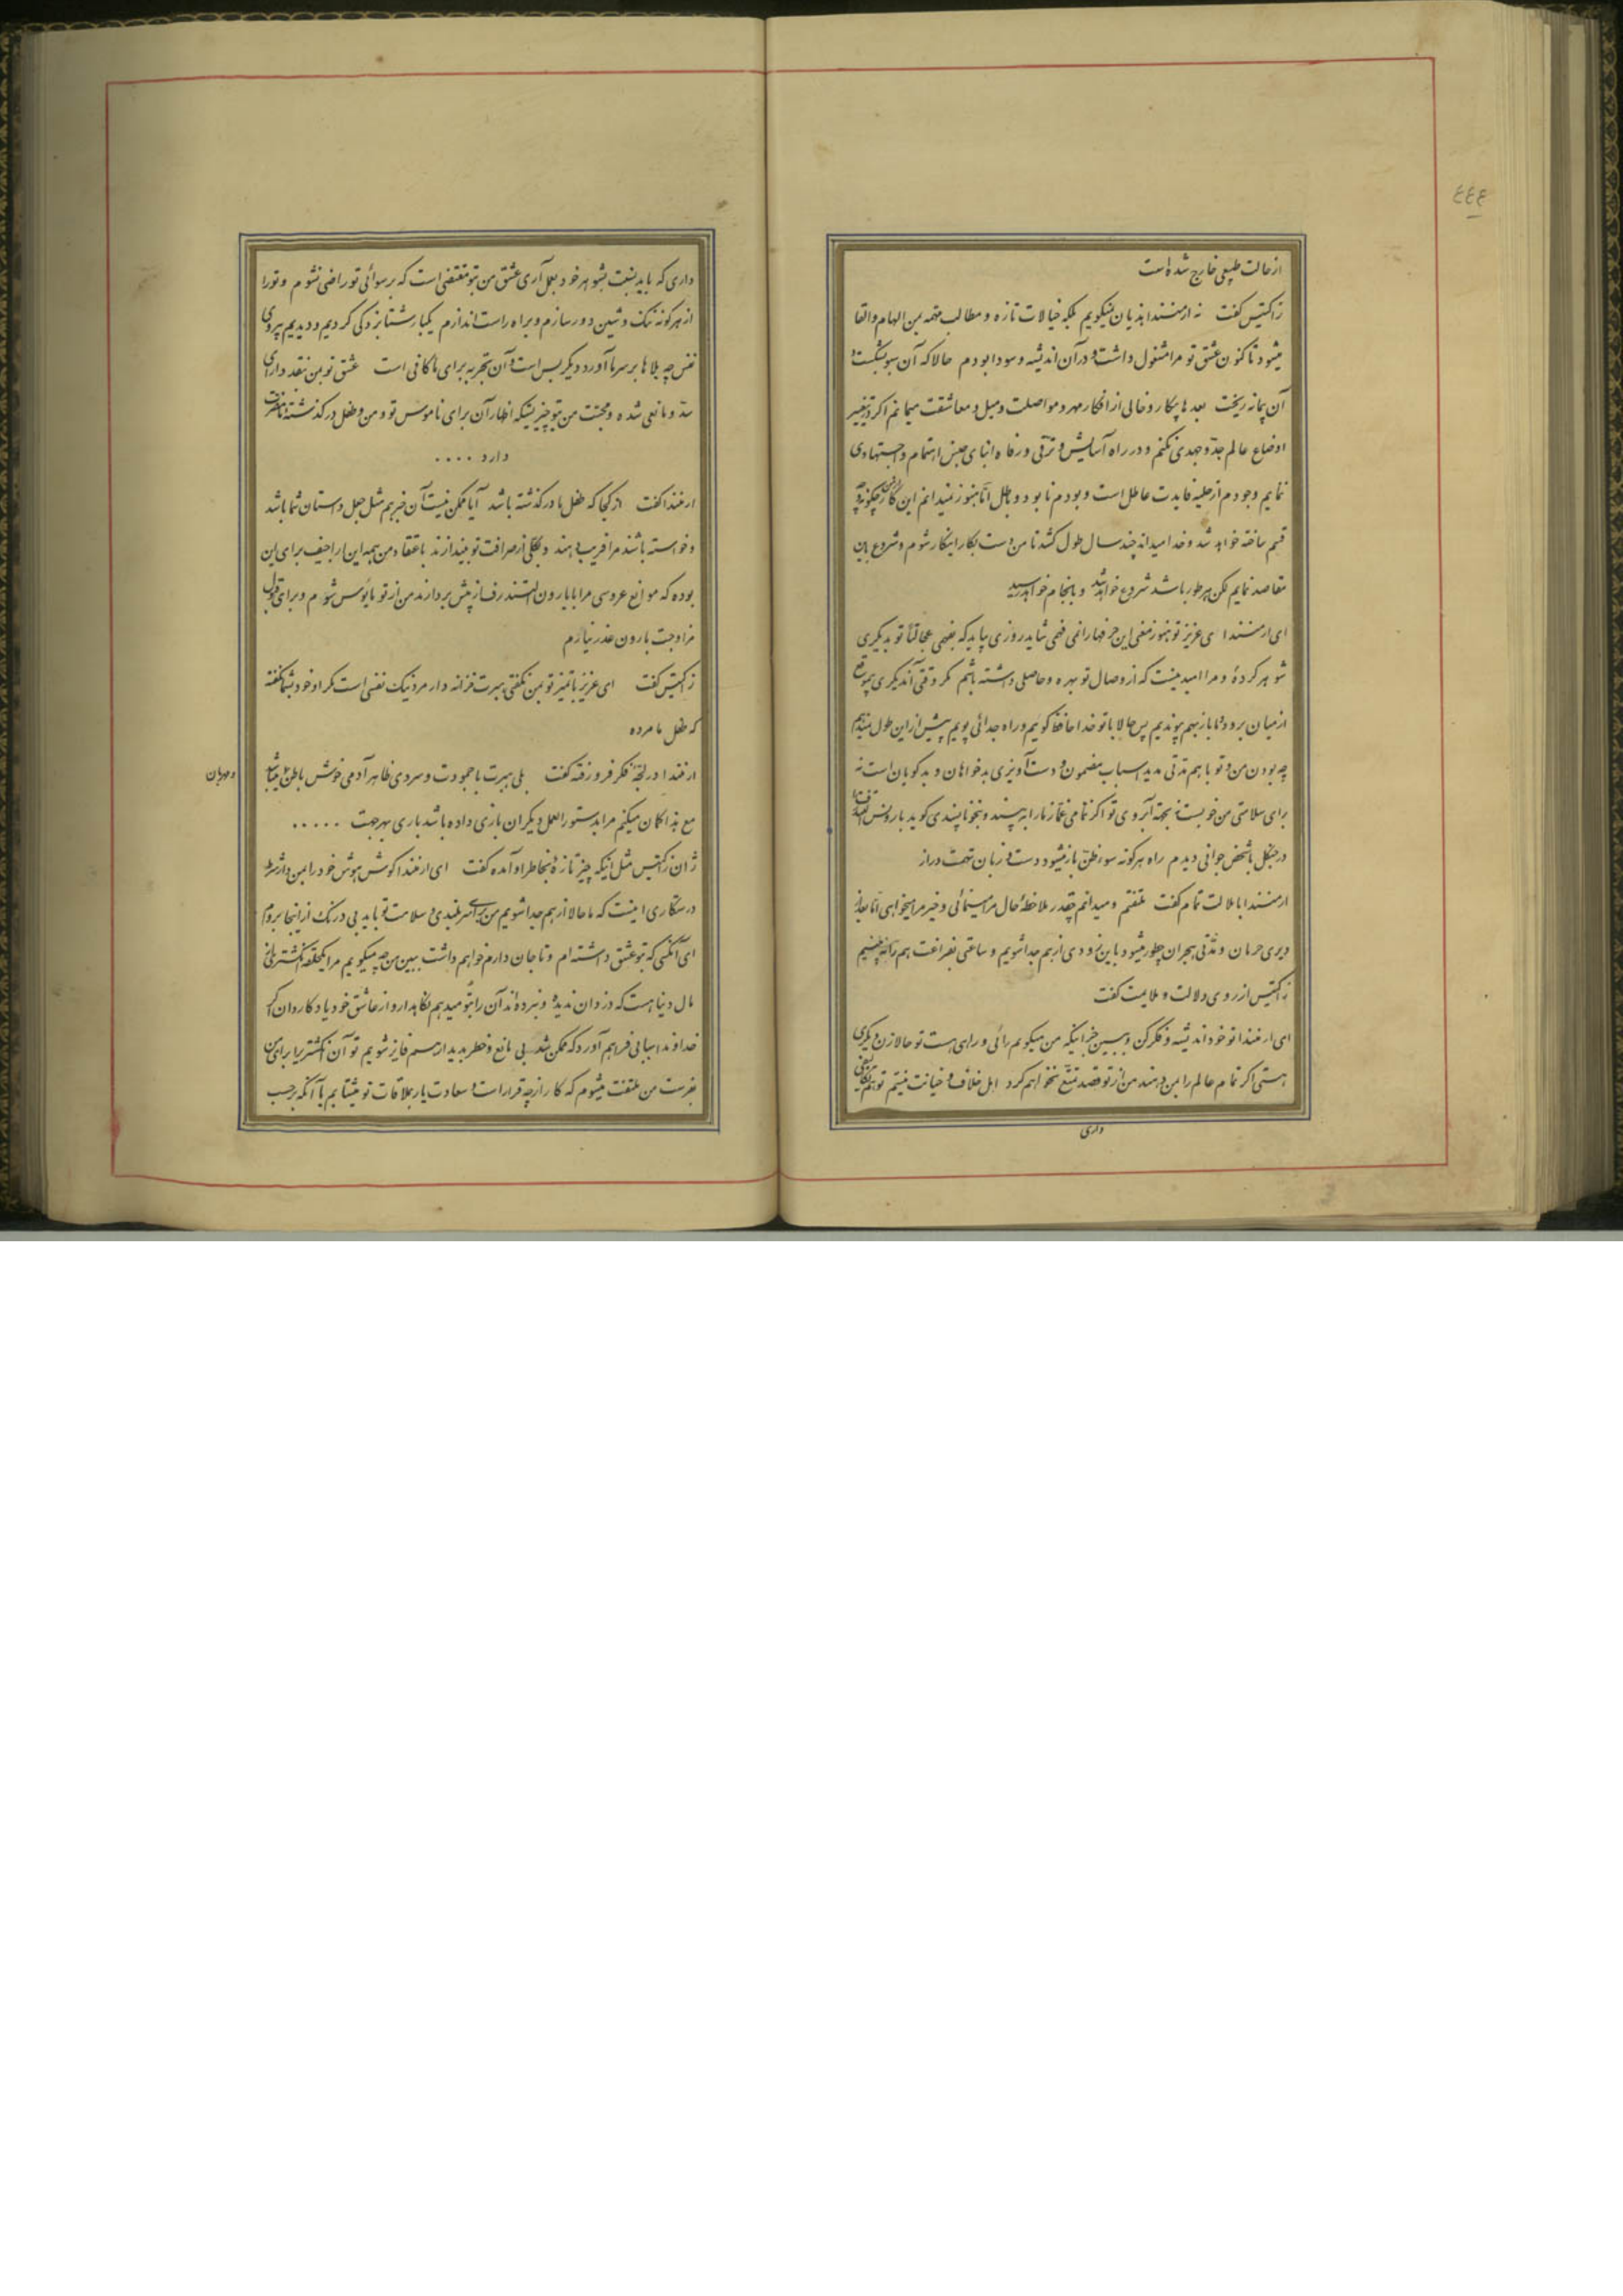 ٤٤٤
از حالت طبیعی خارج شده است
ژاکتیس گفت نه ارمنندا هذیان نمیگویم بلکه خیالات تازه و مطالب مهمه بمن الهام و القا
میشود تا کنون عشق تو مرا مشغول داشت و در آن اندیشه و سودا بودم حالا که آن سبو بشکست و
آن پیمانه ریخت بعدها بیکار و خالی از افکار مهر و مواصلت و میل و معاشقت میمانم اگر در تغییر
اوضاع عالم جد و جهدی نکنم و در راه آسایش و ترقی و رفاه ابنای جنس اهتمام و اجتهادی
ننمایم وجودم از حلیه فایدت عاطل است و بودم نابود و باطل اما هنوز نمیدانم این کار چگونه و چه
قسم ساخته خواهد شد و خدا میداند چند سال طول کشد تا من دست بکار اینکار شوم و شروع باین
مقاصد نمایم لکن هر طور باشد شروع خواهد شد و بانجام خواهد رسید
ای ارمنندا ای عزیز تو هنوز معنی این حرفها را نمی فهمی شاید روزی بیاید که بفهمی عجالتا تو بدیگری
شوهر کردهٔ و مرا امید نیست که از وصال تو بهره و حاصلی داشته باشم مگر وقتی آندیگری بموقع
از میان برود و ما باز بهم پیوندیم پس حالا با تو خدا حافظ گوئیم و راه جدائی پویم بیش از این طول ندهیم
چه بودن من و تو با هم مدتی مدید اسباب مضمون و دست آویزی بدخواهان و بدگویان است نه
برای سلامتی من خوبست نه بجهة آبروی تو اگر نمامی غماز ما را به بیند و بنحو ناپسندی گوید بارونس
در جنگل با شخص جوانی دیدم راه هر گونه سوء ظن باز میشود و دست و زبان تهمت دراز
ارمنندا با ملالت تمام گفت ملتفتم و میدانم چقدر ملاحظهٔ حال مرا مینمائی و خیر مرا میخواهی اما بعد از
دیری حرمان و مدتی هجران چطور میشود باین زودی از هم جدا شویم و ساعتی بفراغت هم را نه بینیم
ژاکتیس از روی دلالت و ملایمت گفت
ای ارمنندا تو خود اندیشه و فکر کن و ببین جز اینکه من میگویم رائی و راهی هست تو حالا زن دیگری
هستی اگر تمام عالم را بمن دهند من از تو قصد تمتع نخواهم کرد اهل خلاف و خیانت نیستم تو هم تکالیفی
داری
داری که باید نسبت بشوهر خود بعمل آری عشق من بتو مقتضی است که برسوائی تو راضی نشوم و تو را
از هر گونه ننگ و شین دور سازم و براه راست اندازم یکبار شتابزدگی کردیم و دیدیم پیروی
نفس چه بلاها بر سر ما آورد دیگر بس است و آن تجربه برای ما کافی است عشق تو بمن نقد دارای
سد و مانعی شده و محبت من بتو چیزیستکه اظهار آن برای ناموس تو و من و طفل در گذشته ما مضرت
دارد ....
ارمنندا گفت از کجا که طفل ما در گذشته باشد آیا ممکن نیست آن خبر هم مثل جعل داستان شما باشد
و خواسته باشند مرا فریب دهند و بکلی از صرافت تو بیندازند باعتقاد من همه این اراجیف برای این
بوده که موانع عروسی مرا با بارون السندرف از پیش بردارند من از تو مأیوس شوم و برای قبول
مزاوجت بارون عذر نیارم
ژاکتیس گفت ای عزیز با تمیز تو بمن نگفتی ببرت فرزانه دار مرد نیک نفسی است مگر او خود بشما نگفته
که طفل ما مرده
ارمنندا در لجهٔ فکر فرو رفته گفت بلی ببرت با جمودت و سردی ظاهر آدمی خوش باطن میباشد
و مهربان
مع هذا گمان میکنم مرا بدستور العمل دیگران بازی داده باشد باری بهر جهت .....
ژان ژاکتیس مثل اینکه چیز تازهٔ بخاطر او آمده گفت ای ارمنندا گوش هوش خود را بمن دار شرط
رستگاری اینست که ما حالا از هم جدا شویم من برای سربلندی و سلامت تو باید بی درنگ از اینجا بروم
ای آنکسی که بتو عشق داشته ام و تا جان دارم خواهم داشت ببین من چه میگویم مرا یکحلقه انگشتر
مال دنیا هست که دزدان ندیده و نبرده اند آن را بتو میدهم نگاهدار و از عاشق خود یاد کار دان اگر
خداوند اسبابی فراهم آورد که ممکن شد بی مانع و خطر بدیدار هم فایز شویم تو آن انگشتر را برای من
بفرست من ملتفت میشوم که کار از چه قرار است و سعادت یار بملاقات تو میشتابم یا آنکه بر حسب